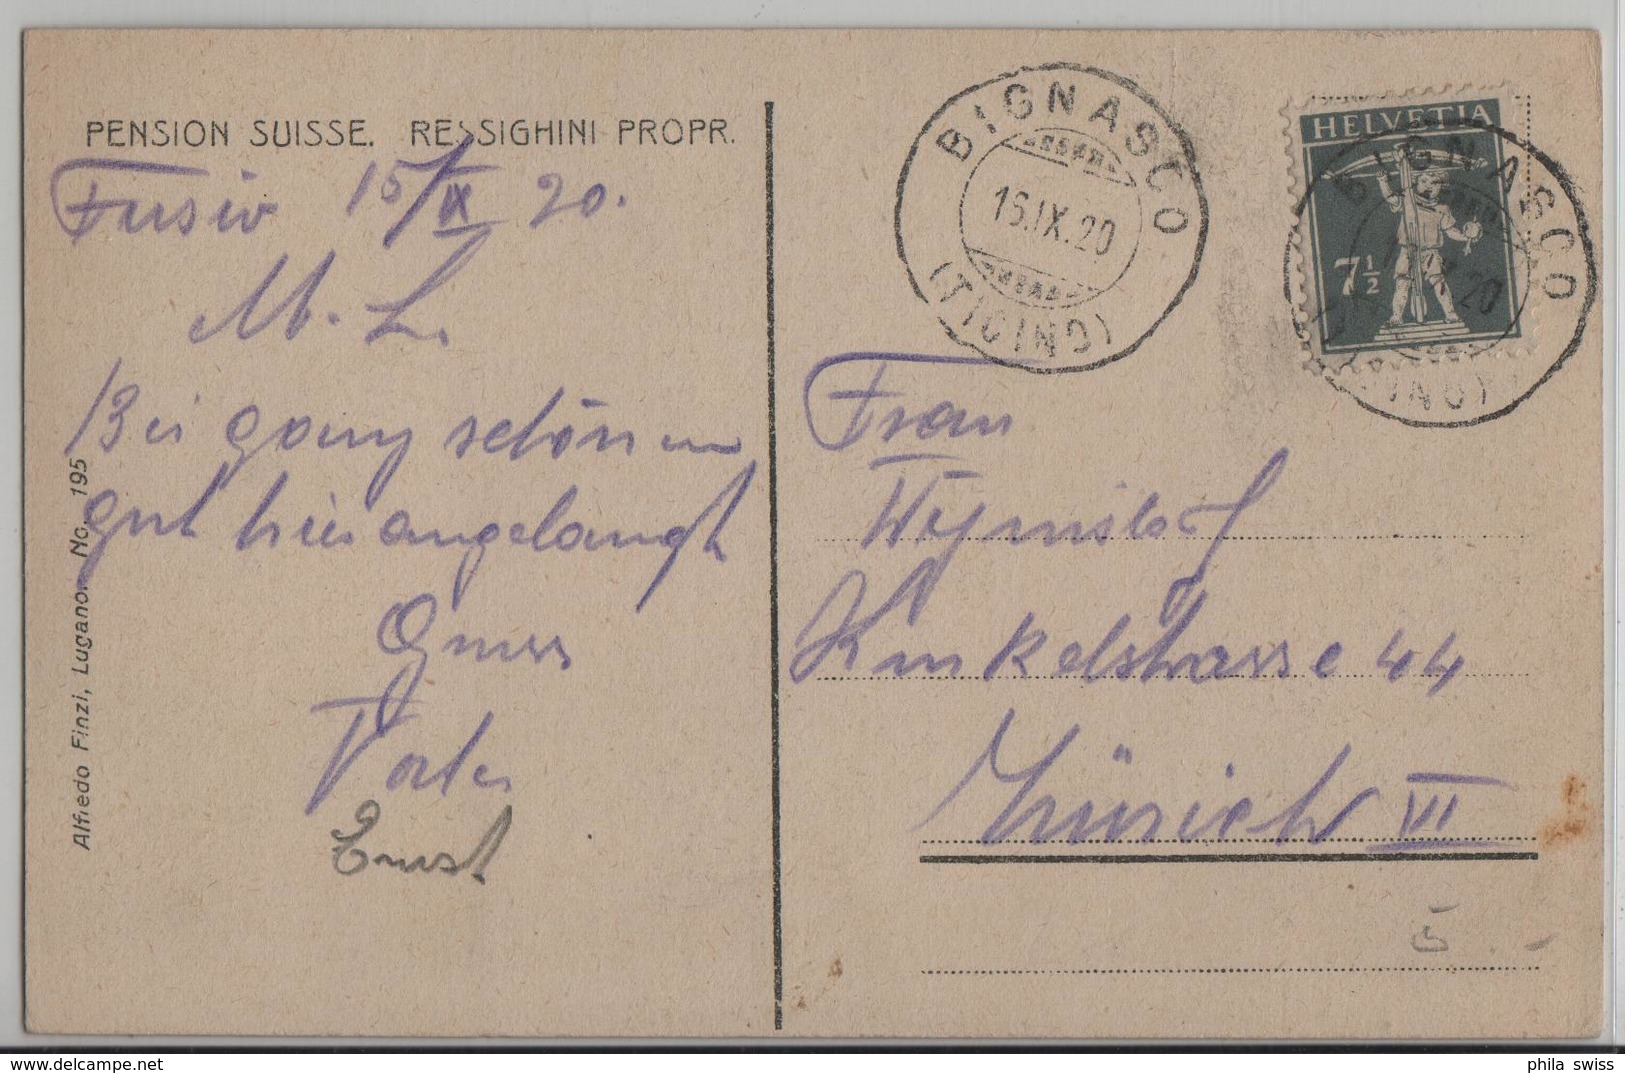 PENSION SUISSE. RESSIGHINI PROPR.
Fusio 15/IX 20.
M. L.
Bei ganz schönem
gut hier angelangt
Gruss
Vater
Ernst
Alfredo Finzi, Lugano. No. 195
BIGNASCO
16.IX.20
(TICINO)
HELVETIA
7½
BIGNASCO
IX.20
Frau
Kinkelstrasse 44
Zürich VI
5 . -
phila swiss